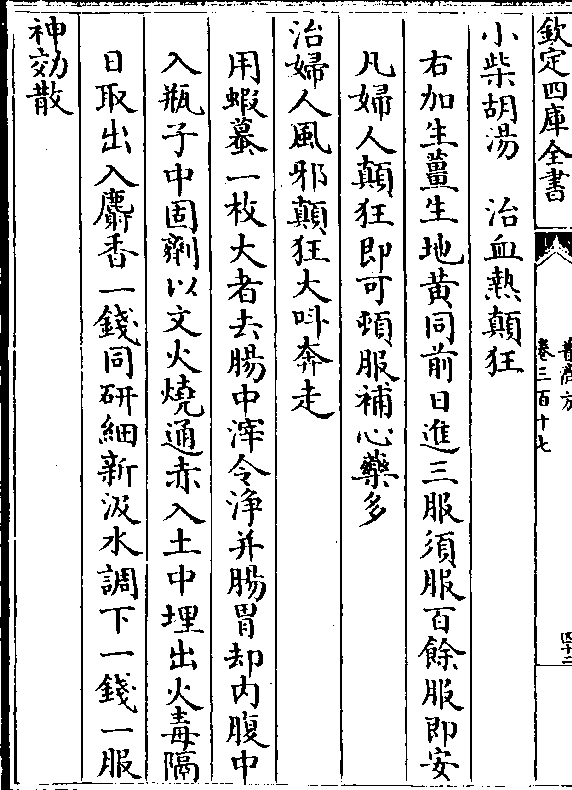 欽定四庫全書
普濟方
卷三百十七
四十二
小柴胡湯　治血熱顛狂
右加生薑生地黄同前日進三服須服百餘服即安
凡婦人顛狂即可頓服補心藥多
治婦人風邪顛狂大呌奔走
用蝦蟇一枚大者去腸中滓令浄并腸胃却内腹中
入瓶子中固劑以文火燒通赤入土中埋出火毒隔
日取出入麝香一錢同研細新汲水調下一錢一服
神効散